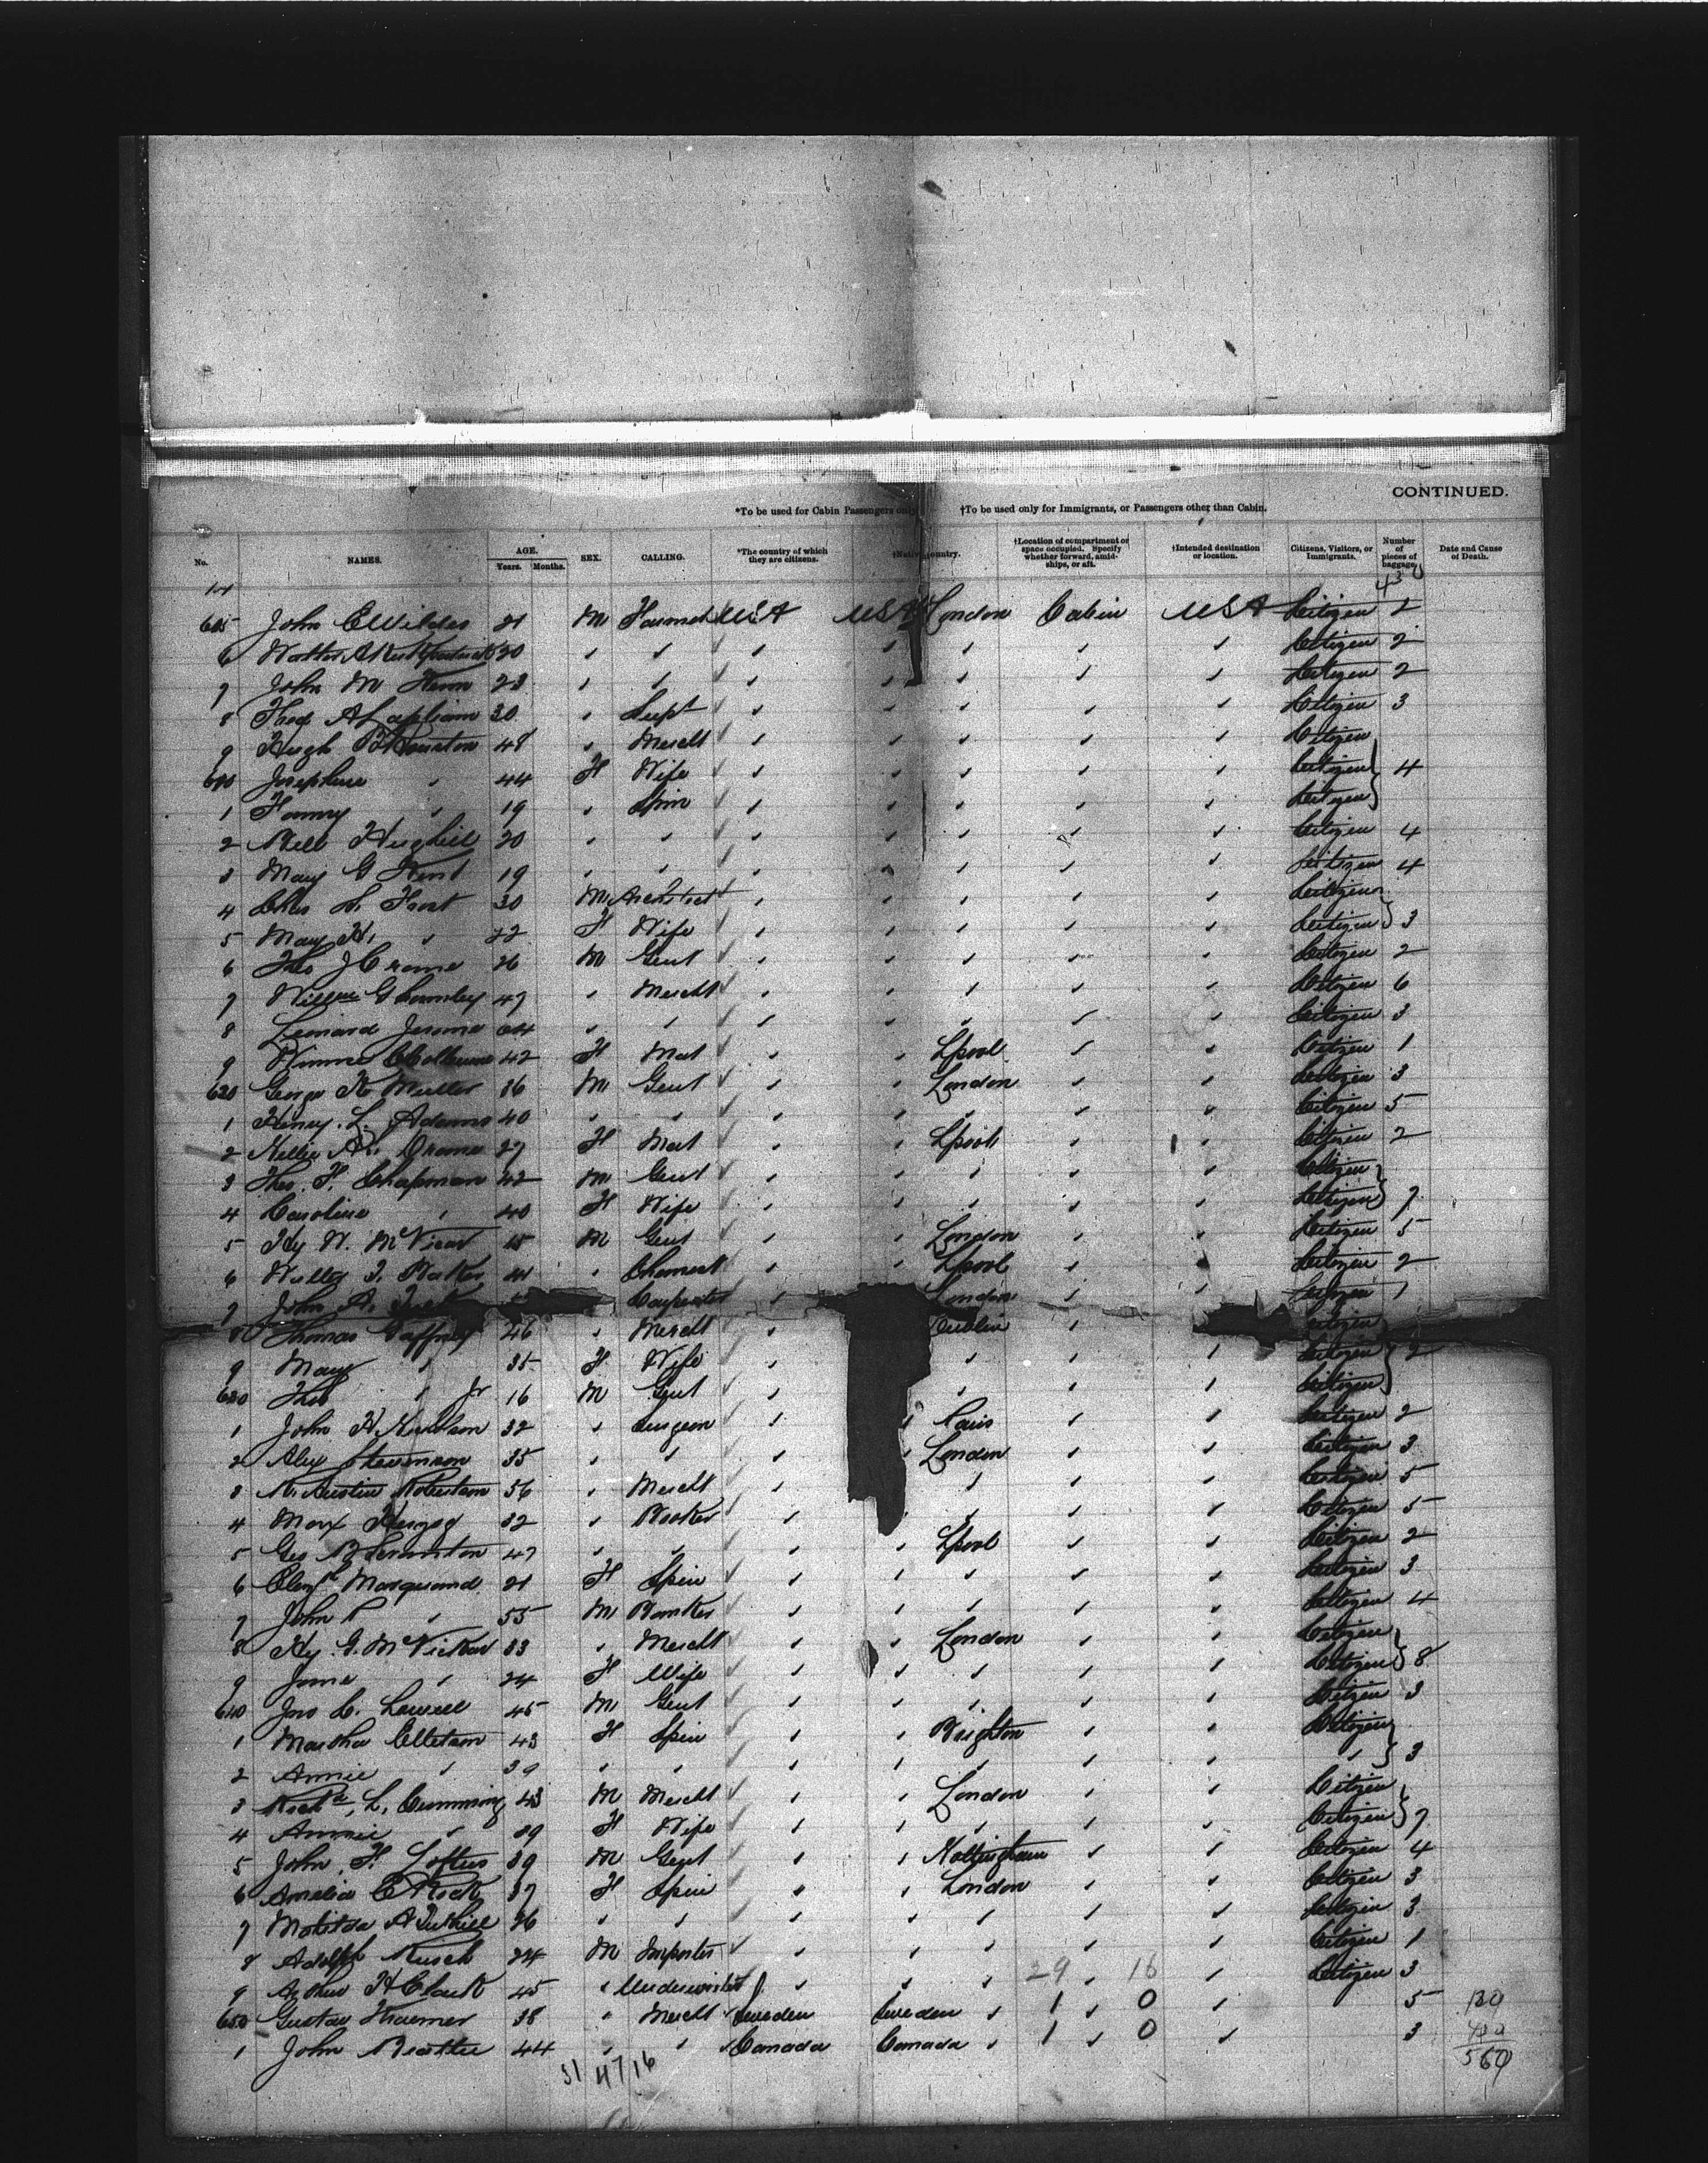 CONTINUED.
*To be used for Cabin Passengers only †To be used only for Immigrants, or Passengers other than Cabin.
No. NAMES. AGE. Years. Months. SEX. CALLING. *The country of which they are citizens. †Native country. †Location of compartment or space occupied. Specify whether forward, amidships, or aft. †Intended destination or location. Citizens, Visitors, or Immigrants. Number of pieces of baggage. Date and Cause of Death.
605 John C Wildes 21 M Farmer USA USA London Cabin USA Citizen 2
6 Walter A 30 Citizen 2
7 John M 23 Citizen 2
8 Fred A Lapham 30 Supt Citizen 3
9 Hugh 48 Mercht Citizen
610 Josephine 44 F Wife Citizen 4
1 Fanny 19 Spin Citizen
2 Nell Hughill 20 Citizen 4
3 May G Kent 19 Citizen 4
4 Chas L. Frost 30 M Architect Citizen
5 May H. 22 F Wife Citizen 3
6 Theo J Crane 26 M Gent Citizen 2
7 Willm Ghormley 47 Mercht Citizen 6
8 Leonard Jerome 64 Citizen 3
9 42 F Mat Lpool Citizen 1
620 George N Muller 36 M Gent London Citizen 3
1 Henry L. Adams 40 Citizen 5
2 Nellie Crane 27 F Mat Lpool Citizen 2
3 Theo. F. Chapman 42 M Gent Citizen
4 Caroline 40 F Wife Citizen 7
5 Hy W. McVicar 45 M Gent London Citizen 5
6 Baker Chemist Lpool Citizen 2
7 John A. Carpenter London Citizen 1
8 Thomas Gaffney 46 Mercht Dublin Citizen
9 Mary 35 F Wife Citizen 2
630 Thos Jr 16 M Gent Citizen
1 John H. 32 Surgeon Paris Citizen 2
2 Alex Stevenson 35 London Citizen 3
3 Austin Robertson 56 Mercht Citizen 5
4 Max Herzog 32 Citizen 5
5 Geo 47 Lpool Citizen 2
6 Elizth Marquand 21 F Spin Citizen 3
7 John P 55 M Banker Citizen 4
8 Hy. G. McVickar 33 Mercht London Citizen
9 24 F Wife Citizen 8
640 Jno C. Lowell 45 M Gent Citizen 3
1 Martha Elletson 43 F Spin Brighton Citizen
2 Annie 39 3
3 L. Cumming 43 M Mercht London Citizen
4 Annie 39 F Wife Citizen 7
5 John F. Loftus 39 M Gent Nottingham Citizen 4
6 Amelia C Rock 37 F Spin London Citizen 3
7 Matilda A Tuthill 26 Citizen 3
8 Adolph Rusch 24 M Importer Citizen 1
9 Arthur H Clark 45 Underwriter 29 16 Citizen 3
650 Gustav Kraemer 38 Mercht Sweden Sweden 1 0 5 130
1 John Beattie 44 Canada Canada 1 0 3 430
560
31 47 16